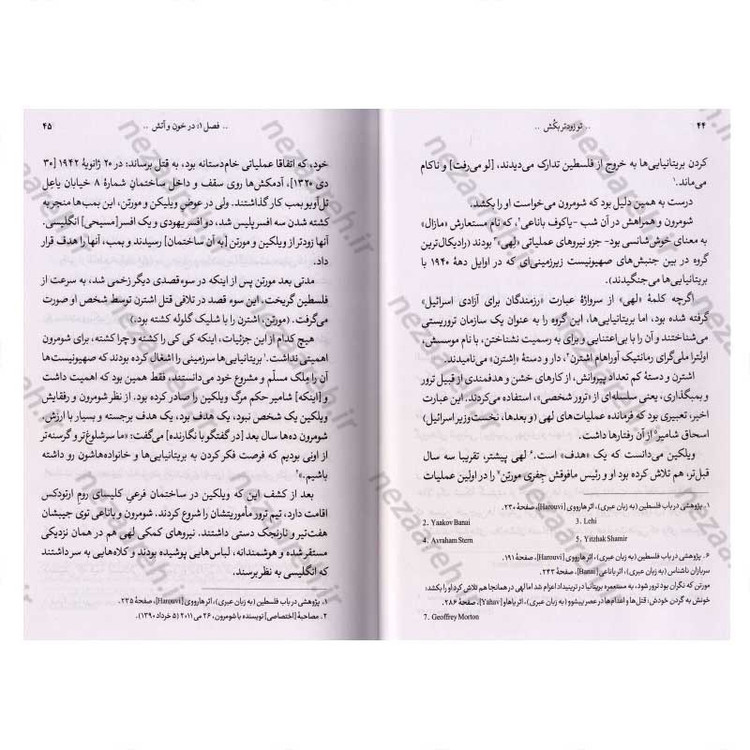 ۴۴
.. تو زودتر بکش ..
کردن بریتانیایی‌ها به خروج از فلسطین تدارک می‌دیدند، [لو می‌رفت] و ناکام
می‌ماند.۱
درست به همین دلیل بود که شومرون می‌خواست او را بکشد.
شومرون و همراهش در آن شب -یاکوف باناعی۲، که نام مستعارش «مازال»
به معنای خوش‌شانسی بود- جزو نیروهای عملیاتی «لهی»۳ بودند (رادیکال‌ترین
گروه در بین جنبش‌های صهیونیست زیرزمینی‌ای که در اوایل دههٔ ۱۹۴۰ با
بریتانیایی‌ها می‌جنگیدند).
اگرچه کلمهٔ «لهی» از سرواژهٔ عبارت «رزمندگان برای آزادی اسرائیل»
گرفته شده بود، اما بریتانیایی‌ها، این گروه را به عنوان یک سازمان تروریستی
می‌شناختند و آن را با بی‌اعتنایی و برای به رسمیت نشناختن، با نام موسسش،
اولترا ملی‌گرای رمانتیک آوراهام اشترن۴، دار و دستهٔ «اشترن» می‌نامیدند.
اشترن و دستهٔ کم تعداد پیروانش، از کارهای خشن و هدفمندی از قبیل ترور
و بمبگذاری، یعنی سلسله‌ای از «ترور شخصی»، استفاده می‌کردند. این عبارت
اخیر، تعبیری بود که فرمانده عملیات‌های لهی (و بعدها، نخست‌وزیر اسرائیل)
اسحاق شامیر۵ از آن رفتارها داشت.
ویلکین می‌دانست که یک «هدف» است.۶ لهی پیشتر، تقریبا سه سال
قبل‌تر، هم تلاش کرده بود او و رئیس مافوقش جفری مورتن۷ را در اولین عملیات
۱. پژوهشی در باب فلسطین (به زبان عبری)، اثر هارووی [Harouvi]، صفحهٔ ۲۳۰.
2. Yaakov Banai 3. Lehi
4. Avraham Stern 5. Yitzhak Shamir
۶. پژوهشی در باب فلسطین (به زبان عبری)، اثر هارووی [Harouvi]، صفحهٔ ۱۹۱.
سربازان ناشناس (به زبان عبری)، اثر باناعی [Banai]، صفحهٔ ۲۴۳.
مورتن که نگران بود ترور شود، به مستعمره بریتانیا در ترینیداد اعزام شد اما لهی در همانجا هم تلاش کرد او را بکشد؛
خونش به گردن خودش: قتل‌ها و اعدام‌ها در عصر ییشوو (به زبان عبری)، اثر یاهاو [Yahav]، صفحهٔ ۲۸۶.
7. Geoffrey Morton
.. فصل ۱: در خون و آتش ..
۴۵
خود، که اتفاقا عملیاتی خام‌دستانه بود، به قتل برساند: در ۲۰ ژانویهٔ ۱۹۴۲ [۳۰
دی ۱۳۲۰]، آدمکش‌ها روی سقف و داخل ساختمان شمارهٔ ۸ خیابان یاعل
تل‌آویو بمب کار گذاشتند. ولی در عوض ویلیکن و مورتن، این بمب‌ها منجر به
کشته شدن سه افسر پلیس شد، دو افسر یهودی و یک افسر [مسیحی] انگلیسی.
آنها زودتر از ویلکین و مورتن [به آن ساختمان] رسیدند و بمب، آنها را هدف قرار
داد.
مدتی بعد مورتن پس از اینکه در سوءقصدی دیگر زخمی شد، به سرعت از
فلسطین گریخت، این سوءقصد در تلافی قتل اشترن توسط شخص او صورت
می‌گرفت. (مورتن، اشترن را با شلیک گلوله کشته بود.)
هیچ کدام از این جزئیات، اینکه کی کی را کشته و چرا کشته، برای شومرون
اهمیتی نداشت.۱ بریتانیایی‌ها سرزمینی را اشغال کرده بودند که صهیونیست‌ها
آن را ملک مسلّم و مشروع خود می‌دانستند، فقط همین بود که اهمیت داشت
و [اینکه] شامیر حکم مرگ ویلکین را صادر کرده بود. از نظر شومرون و رفقایش
ویلکین یک شخص نبود، یک هدف بود، یک هدف برجسته و بسیار با ارزش.
شومرون ده‌ها سال بعد [در گفتگو با نگارنده] می‌گفت: «ما سرشلوغ‌تر و گرسنه‌تر
از اونی بودیم که فرصت فکر کردن به بریتانیایی‌ها و خانواده‌هاشون رو داشته
باشیم.»۲
بعد از کشف این که ویلکین در ساختمان فرعی کلیسای روم ارتودکس
اقامت دارد، تیم ترور مأموریتشان را شروع کردند. شومرون و باناعی توی جیبشان
هفت‌تیر و نارنجک دستی داشتند. نیروهای کمکی لهی هم در همان نزدیکی
مستقر شده و هوشمندانه، لباس‌هایی پوشیده بودند و کلاه‌هایی به سر داشتند
که انگلیسی به نظر برسند.
۱. پژوهشی در باب فلسطین (به زبان عبری)، اثر هارووی [Harouvi]، صفحهٔ ۲۳۵.
۲. مصاحبهٔ [اختصاصی] نویسنده با شومرون، ۲۶ می ۲۰۱۱ (۵ خرداد ۱۳۹۰).
nezaareh.ir